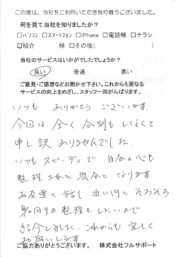 この度は、当社をご利用いただき有り難うございました。
何を見て当社を知りましたか?
□パソコン □スマートフォン □iPhone □電話帳 □チラシ
☑紹介 様 □その他( )
当社のサービスはいかがでしたでしょうか?
良い 普通 悪い
ご意見・ご感想などお聞かせ下さい。これからも更なる
サービスの向上をめざし、スタッフ一同がんばります。
いつも ありがとうございます
今日は全く分別もしてなくて
申し訳ありませんでした。
いつもスピーディで 自分の心も
整理され 気分に なります
お友達に話し 近い内に そろそろ
身の回りの整理をしたいので
これからも宜しく
お願いします
ご協力ありがとうございます。 株式会社フルサポート